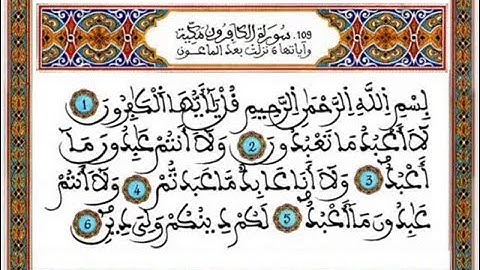 109 سورة الكافرون مكية
وآياتها ٦ نزلت بعد الماعون
بِسْمِ اِ۬للَّهِ اِ۬لرَّحْمَٰنِ اِ۬لرَّحِيمِ قُلْ يَٰٓأَيُّهَا اَ۬لْكَٰفِرُونَ 1
لَآ أَعْبُدُ مَا تَعْبُدُونَ 2 وَلَآ أَنتُمْ عَٰبِدُونَ مَآ
أَعْبُدُ 3 وَلَآ أَنَا عَابِدٌ مَّا عَبَدتُّمْ 4 وَلَآ أَنتُمْ
عَٰبِدُونَ مَآ أَعْبُدُ 5 لَكُمْ دِينُكُمْ وَلِيَ دِينِ 6